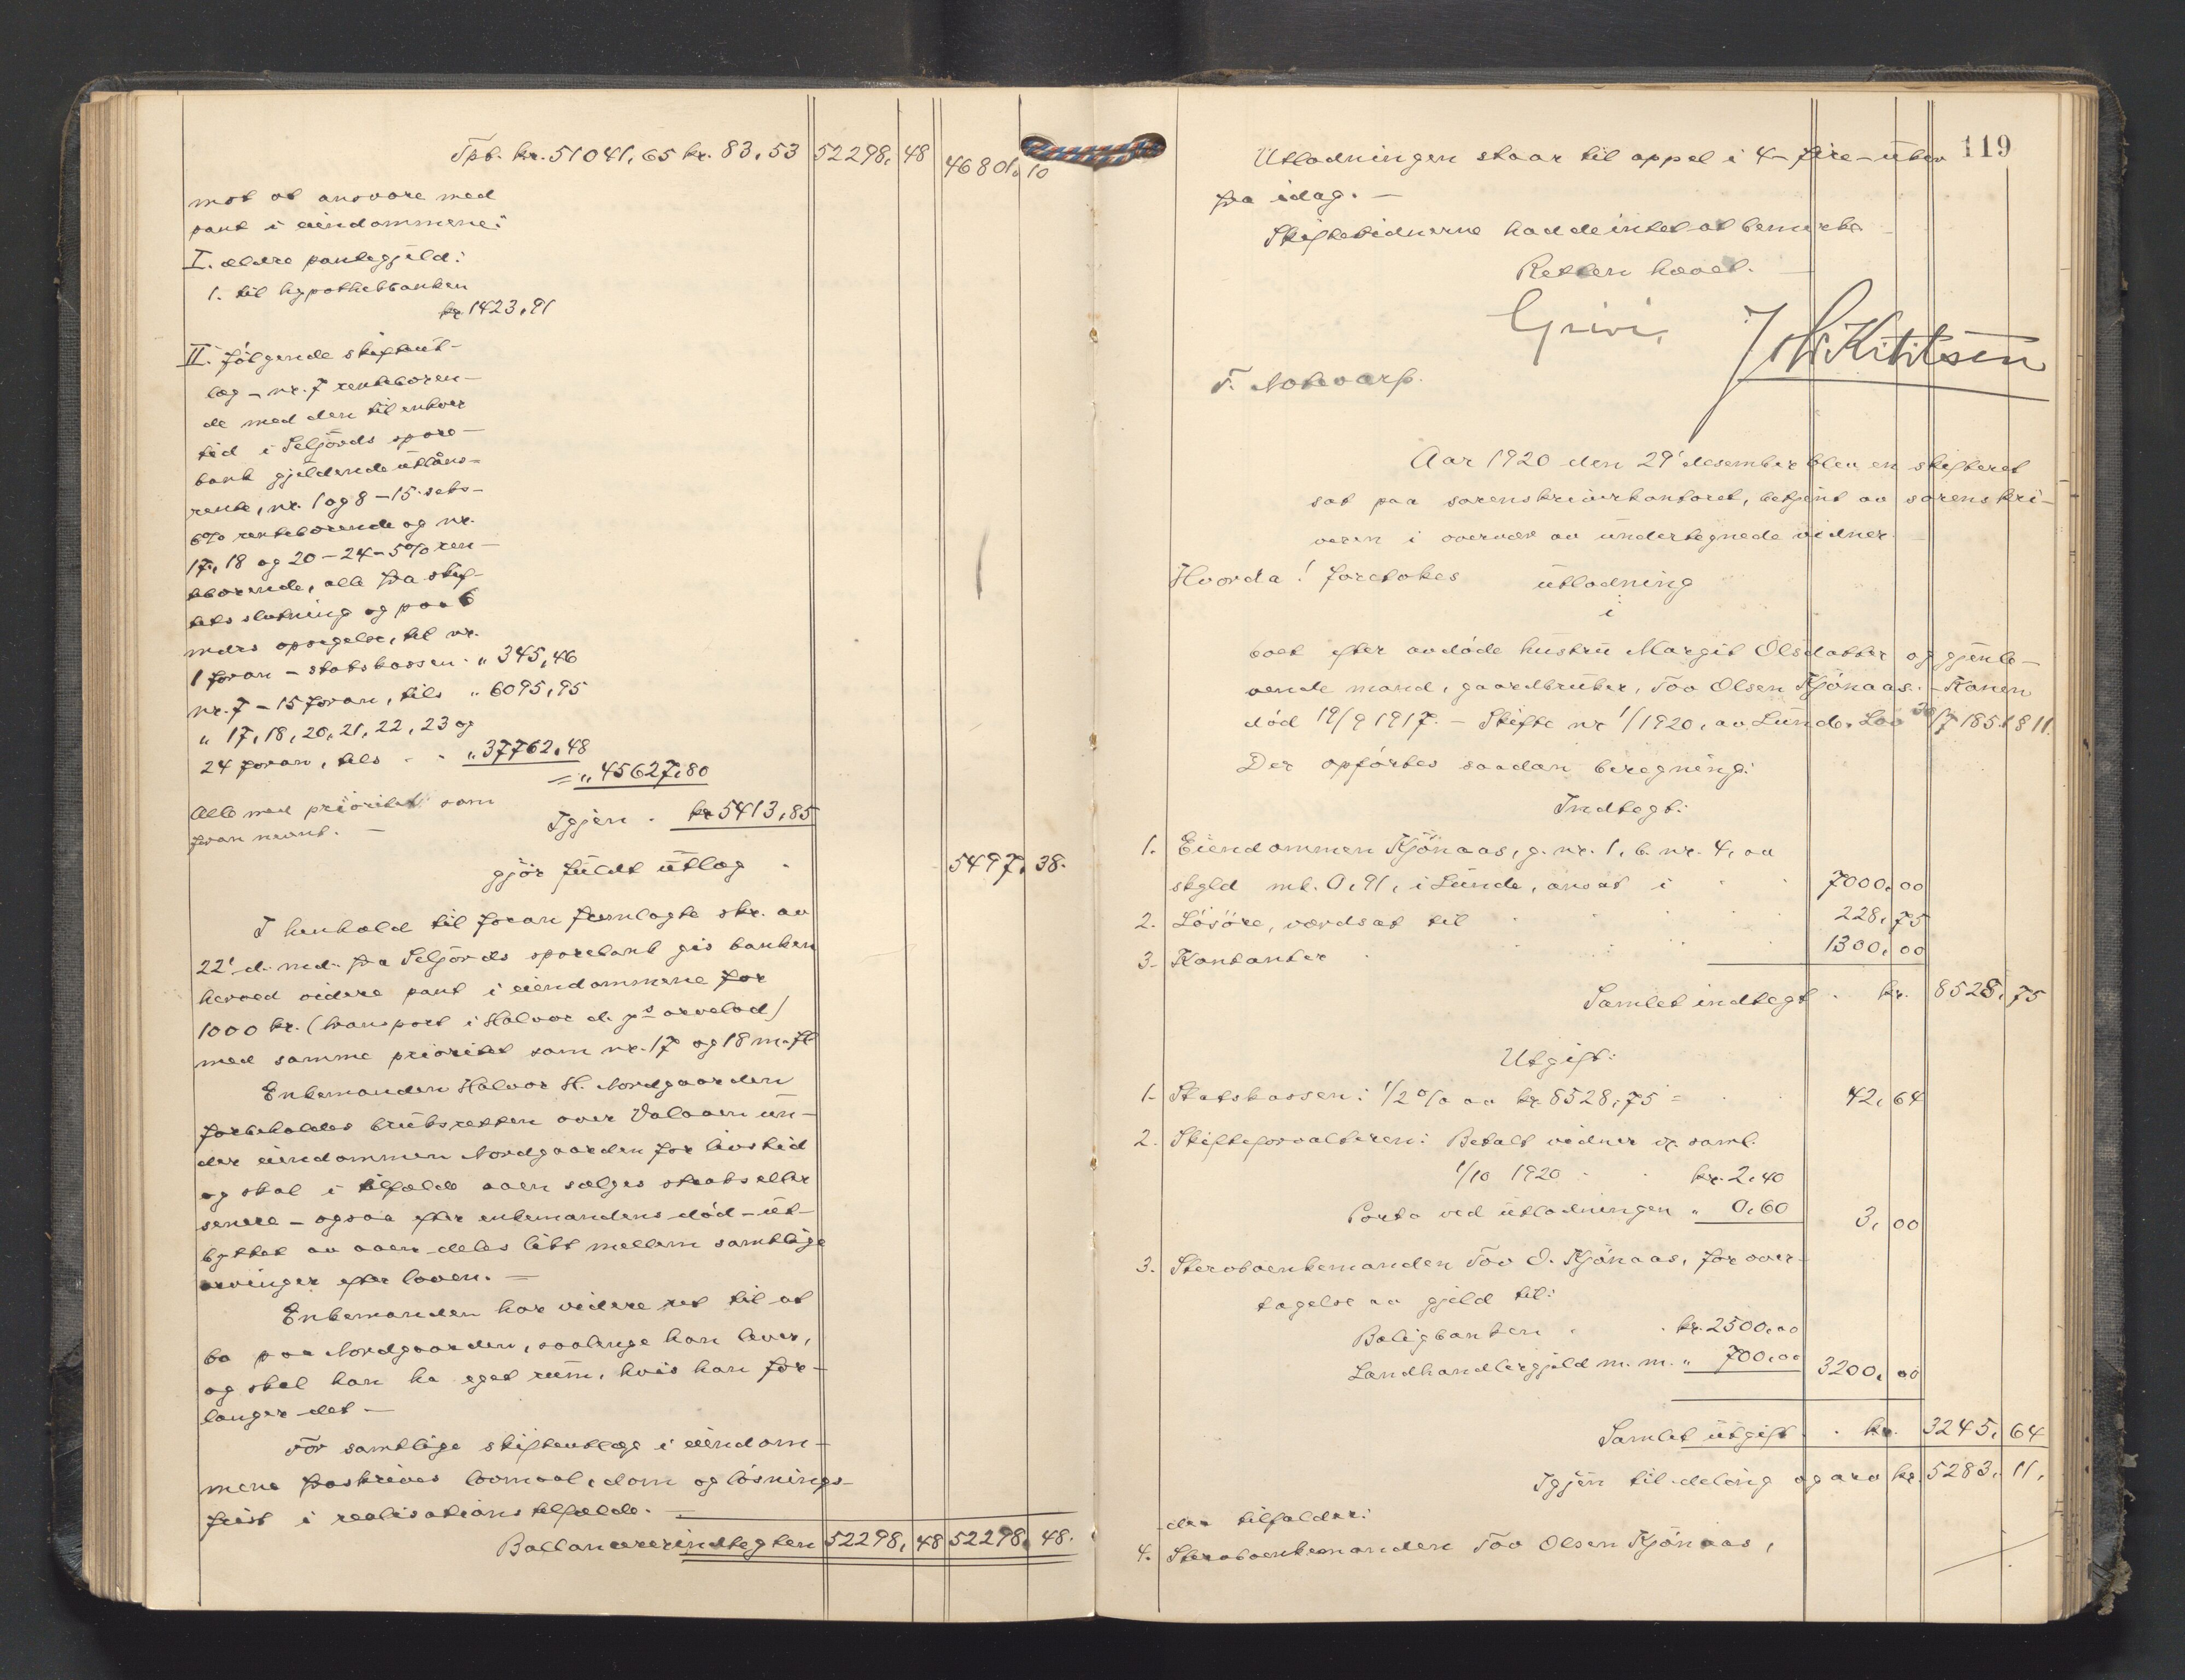 Tpt. kr. 51041,65 kr. 83,53 52298, 48 46801, 10
mot at ansvare med
pant i eiendommene:
I. ældre pantegjeld:
1. til hypothekbanken
kr 1423,91
II. Følgende skifteut-
læg - nr. 7 rentebæren-
de med den til enhver
tid i Seljords spare-
bank gjeldende utlåns-
rente, nr. 1 og 8 - 15 seks-
6% rentebærende og nr.
17, 18 og 20 - 24 - 5% ren-
tebærende, alle fra skif-
tets slutning og paa 6
mdrs opsigelse, til nr.
1 foran - statskassen - " 345,46
nr. 7 - 15 foran, tils " 6095,95
" 17, 18, 20, 21, 22, 23 og
24 foran, tils - - " 37762,48
= " 45627,80
Alle med prioritet som
foran nevnt. -
Igjen - kr 5413,85
gjør fuldt utlog - 5497, 38.
I henhold til foran fremlagte skr. av
22' d. md. fra Seljords sparebank gis banken
herved videre pant i eiendommene for
1000 kr. (transport i Halvor d. y's arvelod)
med samme prioritet som nr. 17 og 18 m. fl.
Enkemanden Halvor H. Nordgaarden
forbeholdes bruksretten over Valaaen un-
der eiendommen Nordgaarden for livstid
og skal i tilfælde aaen sælges straks eller
senere - ogsaa efter enkemandens død - ut-
byttet av aaen deles likt mellem samtlige
arvinger efter loven. -
Enkemanden har videre ret til at
bo paa Nordgaarden, saalenge han lever,
og skal han ha eget rum, hvis han for-
langer det -
For samtlige skifteutlæg i eiendom-
mene fraskrives lovmaal, dom og løsnings-
frist i realisationstilfælde. -
Ballancererindtegten 52298, 48 52298, 48.
119
Utlodningen staar til appel i 4 - fire - uker
fra idag. -
Skiftevidnerne hadde intet at bemerke -
Retten hævet. -
T. Notevarp.
Aar 1920 den 29' desember blev en skifteret
sat paa sorenskriverkontoret, betjent av sorenskri-
veren i overvær av undertegnede vidner.
Hvorda! foretokes utlodning
i
boet efter avdøde hustru Margit Olsdatter og gjenle-
vende mand, gaardbruker, Tov Olsen Kjönaas. - Konen
död 19/9 1917. - Skifte nr 1/1920, av Lunde. Lov 30/7 1851 § 11.
Der opførtes saadan beregning:
Indtegt:
1. Eiendommen Kjönaas, g. nr. 1, b. nr. 4, av
skyld mk. 0,91, i Lunde, ansat i - - 7000, 00
2. Lösöre, værdsat til - - - - 228, 75
3. Kontanter - - - - - 1300, 00
Samlet indtegt - kr. 8528, 75
Utgift:
1. Statskassen: 1/2% av kr 8528,75 = - - 42, 64
2. Skifteforvalteren: Betalt vidner v. saml.
1/10 1920 - - kr. 2,40
Porto ved utlodningen " 0,60 3, 00
3. Stervboenkemanden Tov O. Kjönaas, for over-
tagelse av gjeld til:
Boligbanken - - kr. 2500,00
Landhandlergjeld m. m. " 700,00 3200, 00
Samlet utgift - kr. 3245, 64
Igjen til deling og arv kr. 5283, 11,
der tilfalder:
4. Stervboenkemanden Tov Olsen Kjönaas,